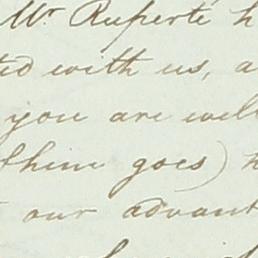 Mr Ruperté h
ted with us, a
you are wel
thine goes) h
our advant